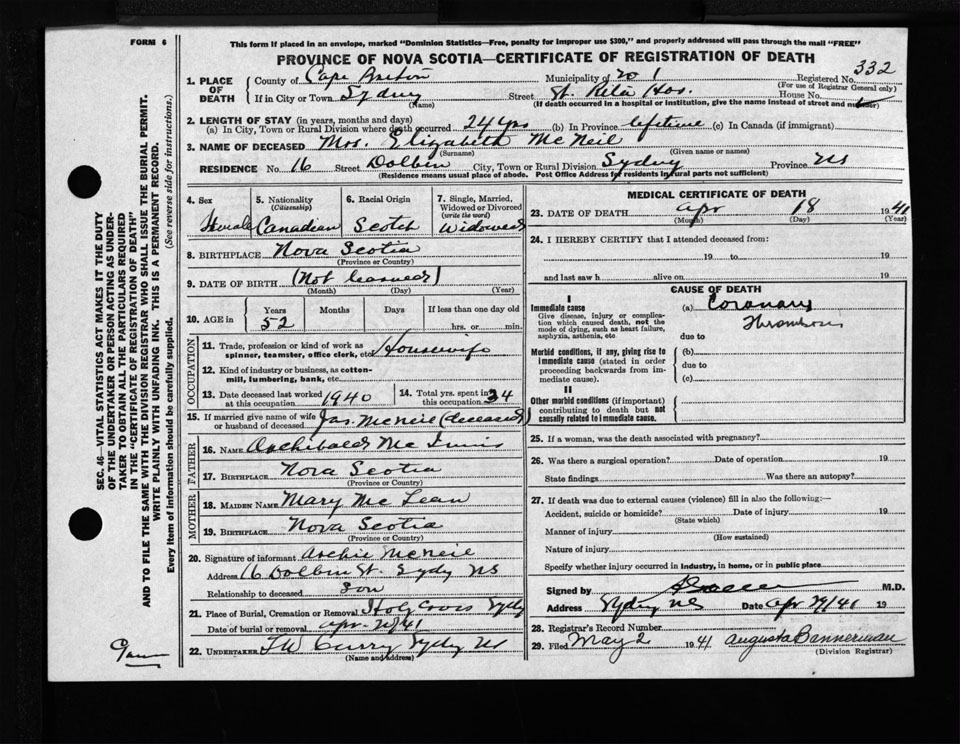 FORM 6
This form if placed in an envelope, marked "Dominion Statistics—Free, penalty for improper use $300," and properly addressed will pass through the mail "FREE"
PROVINCE OF NOVA SCOTIA—CERTIFICATE OF REGISTRATION OF DEATH
SEC. 46—VITAL STATISTICS ACT MAKES IT THE DUTY
OF THE UNDERTAKER OR PERSON ACTING AS UNDER-
TAKER TO OBTAIN ALL THE PARTICULARS REQUIRED
IN THE "CERTIFICATE OF REGISTRATION OF DEATH"
AND TO FILE THE SAME WITH THE DIVISION REGISTRAR WHO SHALL ISSUE THE BURIAL PERMIT.
WRITE PLAINLY WITH UNFADING INK. THIS IS A PERMANENT RECORD.
Every item of information should be carefully supplied. (See reverse side for instructions.)
1. PLACE OF DEATH
County of Cape Breton Municipality of 20 1 Registered No. 332
(For use of Registrar General only)
If in City or Town Sydney Street St. Rita Hos. House No.
(Name) (If death occurred in a hospital or institution, give the name instead of street and number)
2. LENGTH OF STAY (in years, months and days)
(a) In City, Town or Rural Division where death occurred 24 yrs (b) In Province lifetime (c) In Canada (if immigrant)
3. NAME OF DECEASED Mrs. Elizabeth McNeil
(Surname) (Given name or names)
RESIDENCE No. 16 Street Dolbin City, Town or Rural Division Sydney Province NS
(Residence means usual place of abode. Post Office Address for residents in rural parts not sufficient)
4. Sex Female
5. Nationality (Citizenship) Canadian
6. Racial Origin Scotch
7. Single, Married, Widowed or Divorced (write the word) Widowed
8. BIRTHPLACE Nova Scotia
(Province or Country)
9. DATE OF BIRTH (Not learned)
(Month) (Day) (Year)
10. AGE in Years 52 Months Days If less than one day old hrs. or min.
OCCUPATION
11. Trade, profession or kind of work as spinner, teamster, office clerk, etc. Housewife
12. Kind of industry or business, as cotton-mill, lumbering, bank, etc.
13. Date deceased last worked at this occupation 1940
14. Total yrs. spent in this occupation 34
15. If married give name of wife or husband of deceased Jas. McNeil (deceased)
FATHER
16. NAME Archibald McInnis
17. BIRTHPLACE Nova Scotia
(Province or Country)
MOTHER
18. MAIDEN NAME Mary McLean
19. BIRTHPLACE Nova Scotia
(Province or Country)
20. Signature of informant Archie McNeil
Address 16 Dolbin St. Sydy NS
Relationship to deceased Son
21. Place of Burial, Cremation or Removal Holy Cross Sydy
Date of burial or removal Apr. 21/41
22. UNDERTAKER TW Curry Sydy NS
(Name and address)
MEDICAL CERTIFICATE OF DEATH
23. DATE OF DEATH Apr 18 1941
(Month) (Day) (Year)
24. I HEREBY CERTIFY that I attended deceased from:
19 to 19
and last saw h alive on 19
CAUSE OF DEATH
I
Immediate cause
Give disease, injury or complication which caused death, not the mode of dying, such as heart failure, asphyxia, asthenia, etc
(a) Coronary
Thrombosis
due to
Morbid conditions, if any, giving rise to immediate cause (stated in order proceeding backwards from immediate cause).
(b)
due to
(c)
II
Other morbid conditions (if important) contributing to death but not causally related to immediate cause.
25. If a woman, was the death associated with pregnancy?
26. Was there a surgical operation? Date of operation 19
State findings Was there an autopsy?
27. If death was due to external causes (violence) fill in also the following:—
Accident, suicide or homicide? Date of injury 19
(State which)
Manner of injury
(How sustained)
Nature of injury
Specify whether injury occurred in industry, in home, or in public place
Signed by M.D.
Address Sydney NS Date Apr 29/41 19
28. Registrar's Record Number
29. Filed May 2 1941 Augusta Bannerman
(Division Registrar)